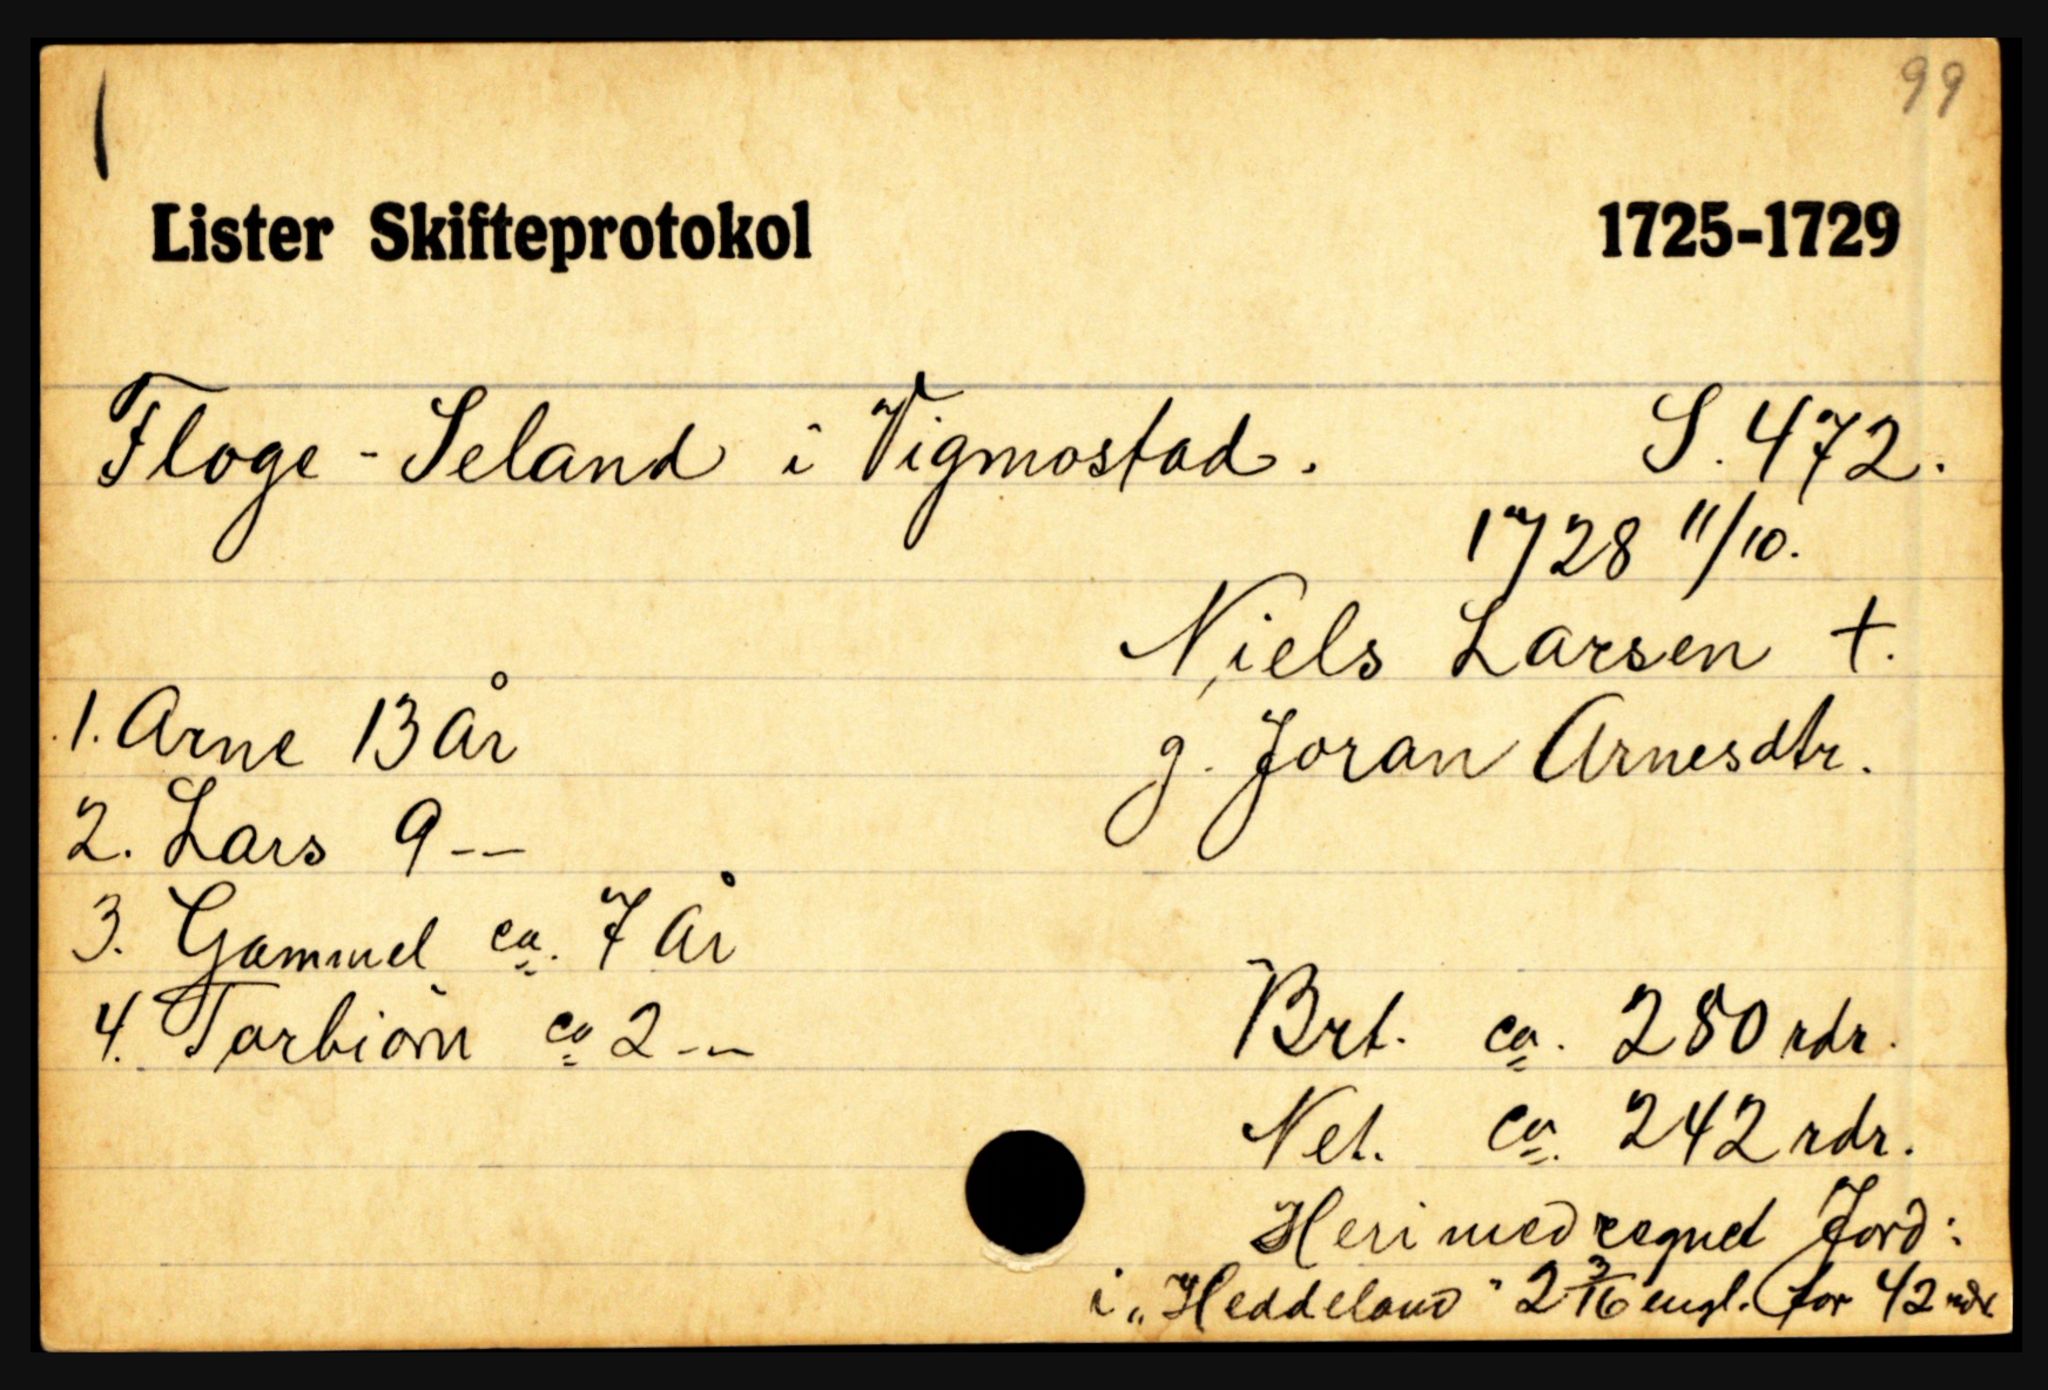 99
Lister Skifteprotokol 1725-1729
Floge - Seland i Vigmostad. S. 472.
1728 11/10.
Niels Larsen †.
1. Arne 13 år g. Joran Arnesdtr.
2. Lars 9 --
3. Gammel ca. 7 år
4. Torbiörn ca 2 -- Brt. ca. 280 rdr.
Net. ca. 242 rdr.
Heri medregnet Jord:
i „Heddeland" 2 3/16 engl. for 42 rdr